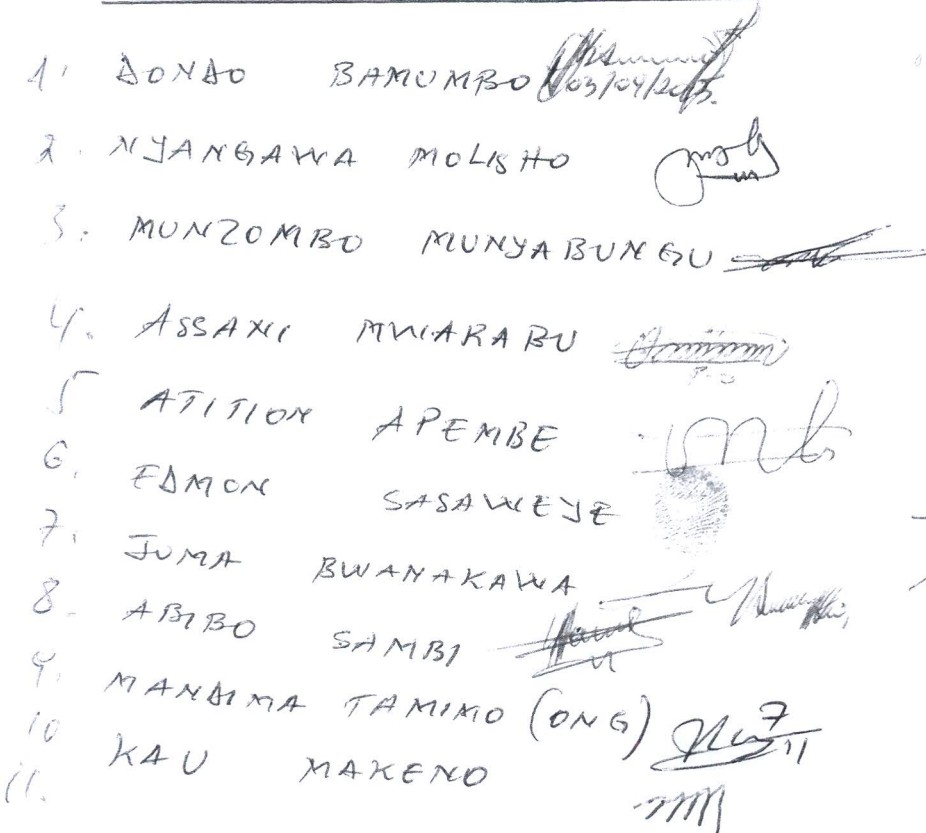 1. DONDO BAMUMBO 03/04/2015.
2. NYANGAWA MOLISHO
3. MUNZOMBO MUNYABUNGU
4. ASSANI MWARABU
5 ATITION APEMBE
6. EDMON SASAWEYE
7. JUMA BWANAKAWA
8. ABIBO SAMBI
9. MANDIMA TAMIMO (ONG)
10 KAU MAKENO
11.